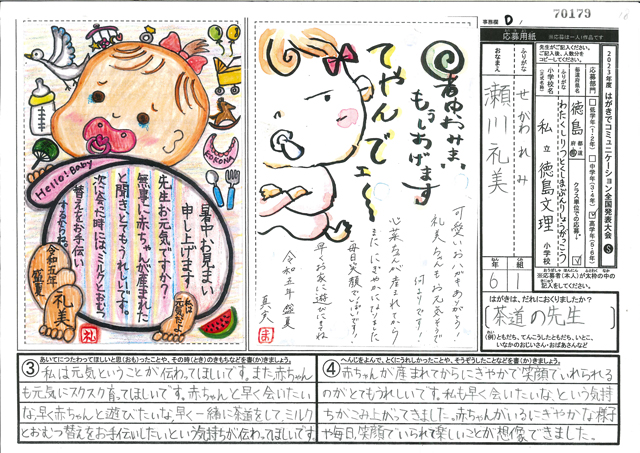 Hello! Baby
KOKONA
暑中お見まい
申し上げます
先生お元気ですか?
無事に赤ちゃんが産まれた
と聞きとてもうれしいです。
次会った時には、ミルクとおむつ
替えをお手伝い
するからね。
令和五年
盛夏
礼美
私は
元気だよ
礼
暑中おみまい
もうしあげます
てやんでェ〜
可愛いおハガキありがとう!
礼美さんもお元気そうで
何よりです
心菜さんが産まれてから
毎日笑顔でいっぱいです!
早くお家に遊びに来てね
令和五年 盛夏
事務欄 D
70179
応募用紙
※応募は一人一作品です
2023年度 はがきでコミュニケーション全国発表大会 S
先生がご記入ください。
ご記入後、人数分を
コピーしてください。
応募部門
低学年(1・2年)
中学年(3・4年)
高学年(5・6年)
都道府県名
徳島
都道府県
クラス単位での応募
小学校名
(正式名称)
ふりがな
わたくしりつとくしまぶんりしょうがっこう
私立 徳島文理
小学校
おなまえ
ふりがな
せがわれみ
瀬川 礼美
年 6
組 1
※応募者(本人)が太枠の中を
はがきは、だれにおくりましたか?
茶道の先生
(例)ともだち、てんこうしたともだち、いとこ、
いなかのおじいさん・おばあさんなど
③ あいてにつたわってほしいと思(おも)ったことや、その時(とき)のきもちなどを書(か)きましょう。
私は元気ということが伝わってほしいです。また、赤ちゃん
も元気にスクスク育ってほしいです。赤ちゃんと早く会いたい
な、早く赤ちゃんと遊びたいな、早く一緒に茶道をして、ミルク
とおむつ替えをお手伝いしたいという気持ちが伝わってほしいです。
④ へんじをよんで、とくにうれしかったことや、そうぞうしたことなどを書(か)きましょう。
赤ちゃんが産まれてからにぎやかで笑顔でいれられる
のがとてもうれしいです。私も早く会いたいな、という気持
ちがこみ上がってきました。赤ちゃんがいるにぎやかな様子
や毎日、笑顔でいられて楽しいことが想像できました。